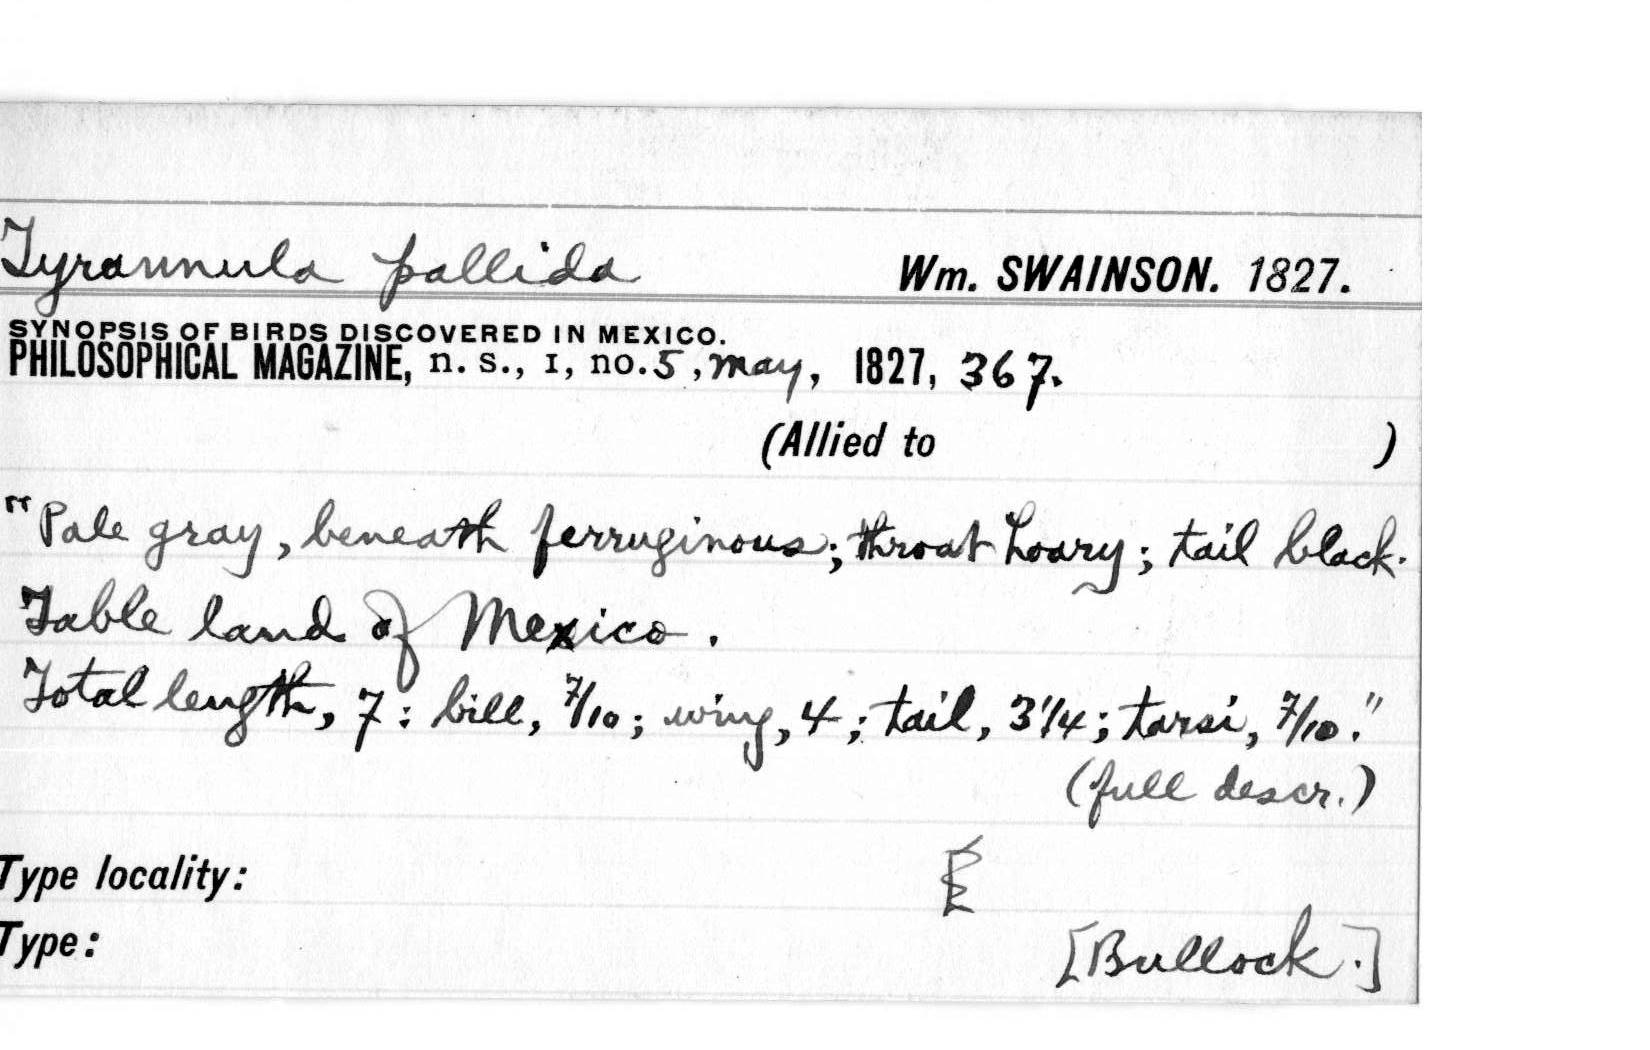 Tyrannula pallida Wm. SWAINSON. 1827.
SYNOPSIS OF BIRDS DISCOVERED IN MEXICO.
PHILOSOPHICAL MAGAZINE, n. s., I, no. 5, May, 1827, 367.
(Allied to )
"Pale gray, beneath ferruginous; throat hoary; tail black.
Table land of Mexico.
Total length, 7: bill, 7/10; wing, 4; tail, 3 1/4; tarsi, 7/10."
(full descr.)
Type locality:
Type: [Bullock.]